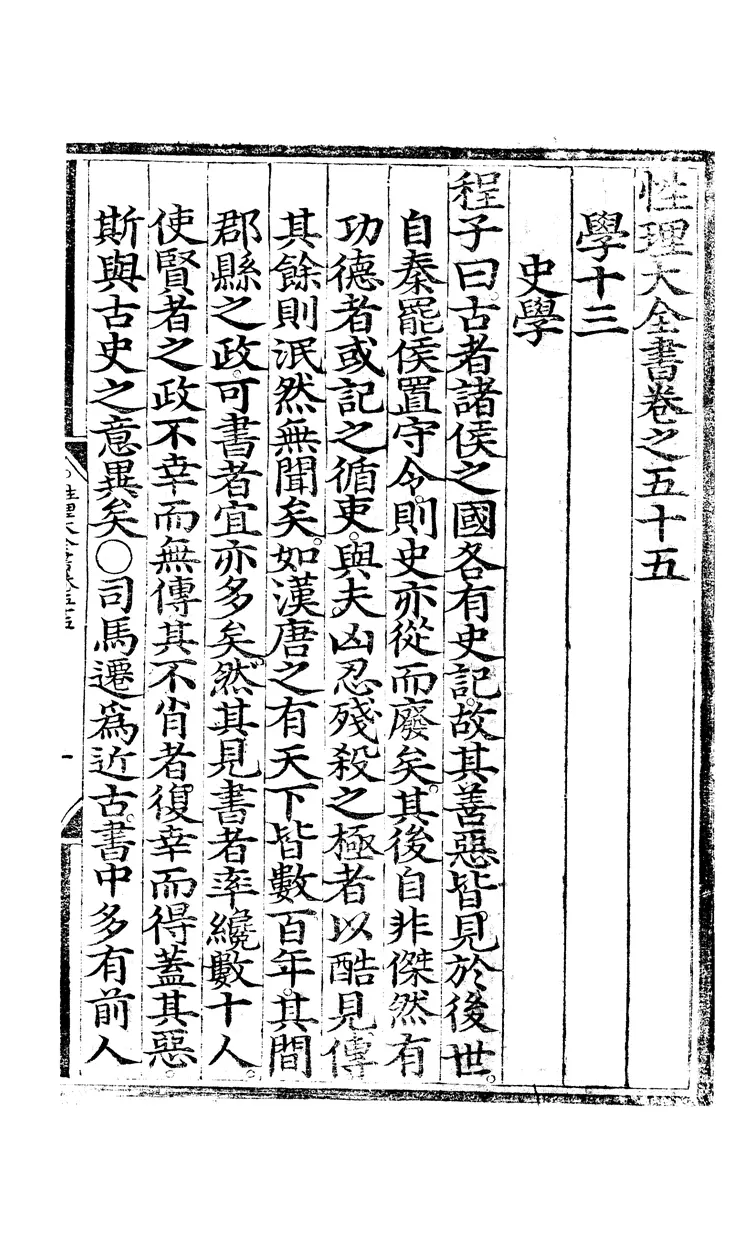 性理大全書卷之五十五
學十三
史學
程子曰古者諸侯之國各有史記故其善惡皆見於後世。
自秦罷侯置守令則史亦從而廢矣其後自非傑然有
功德者或記之循吏與夫凶忍殘殺之極者以酷見傳
其餘則泯然無聞矣如漢唐之有天下皆數百年其間
郡縣之政可書者宜亦多矣然其見書者率纔數十人。
使賢者之政不幸而無傳其不肖者復幸而得蓋其惡。
斯與古史之意異矣○司馬遷爲近古書中多有前人